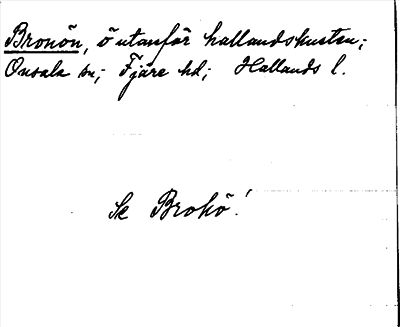 Bronön, ö utanför hallandskusten;
Onsala sn; Fjäre hd; Hallands l.
Se Brokö!